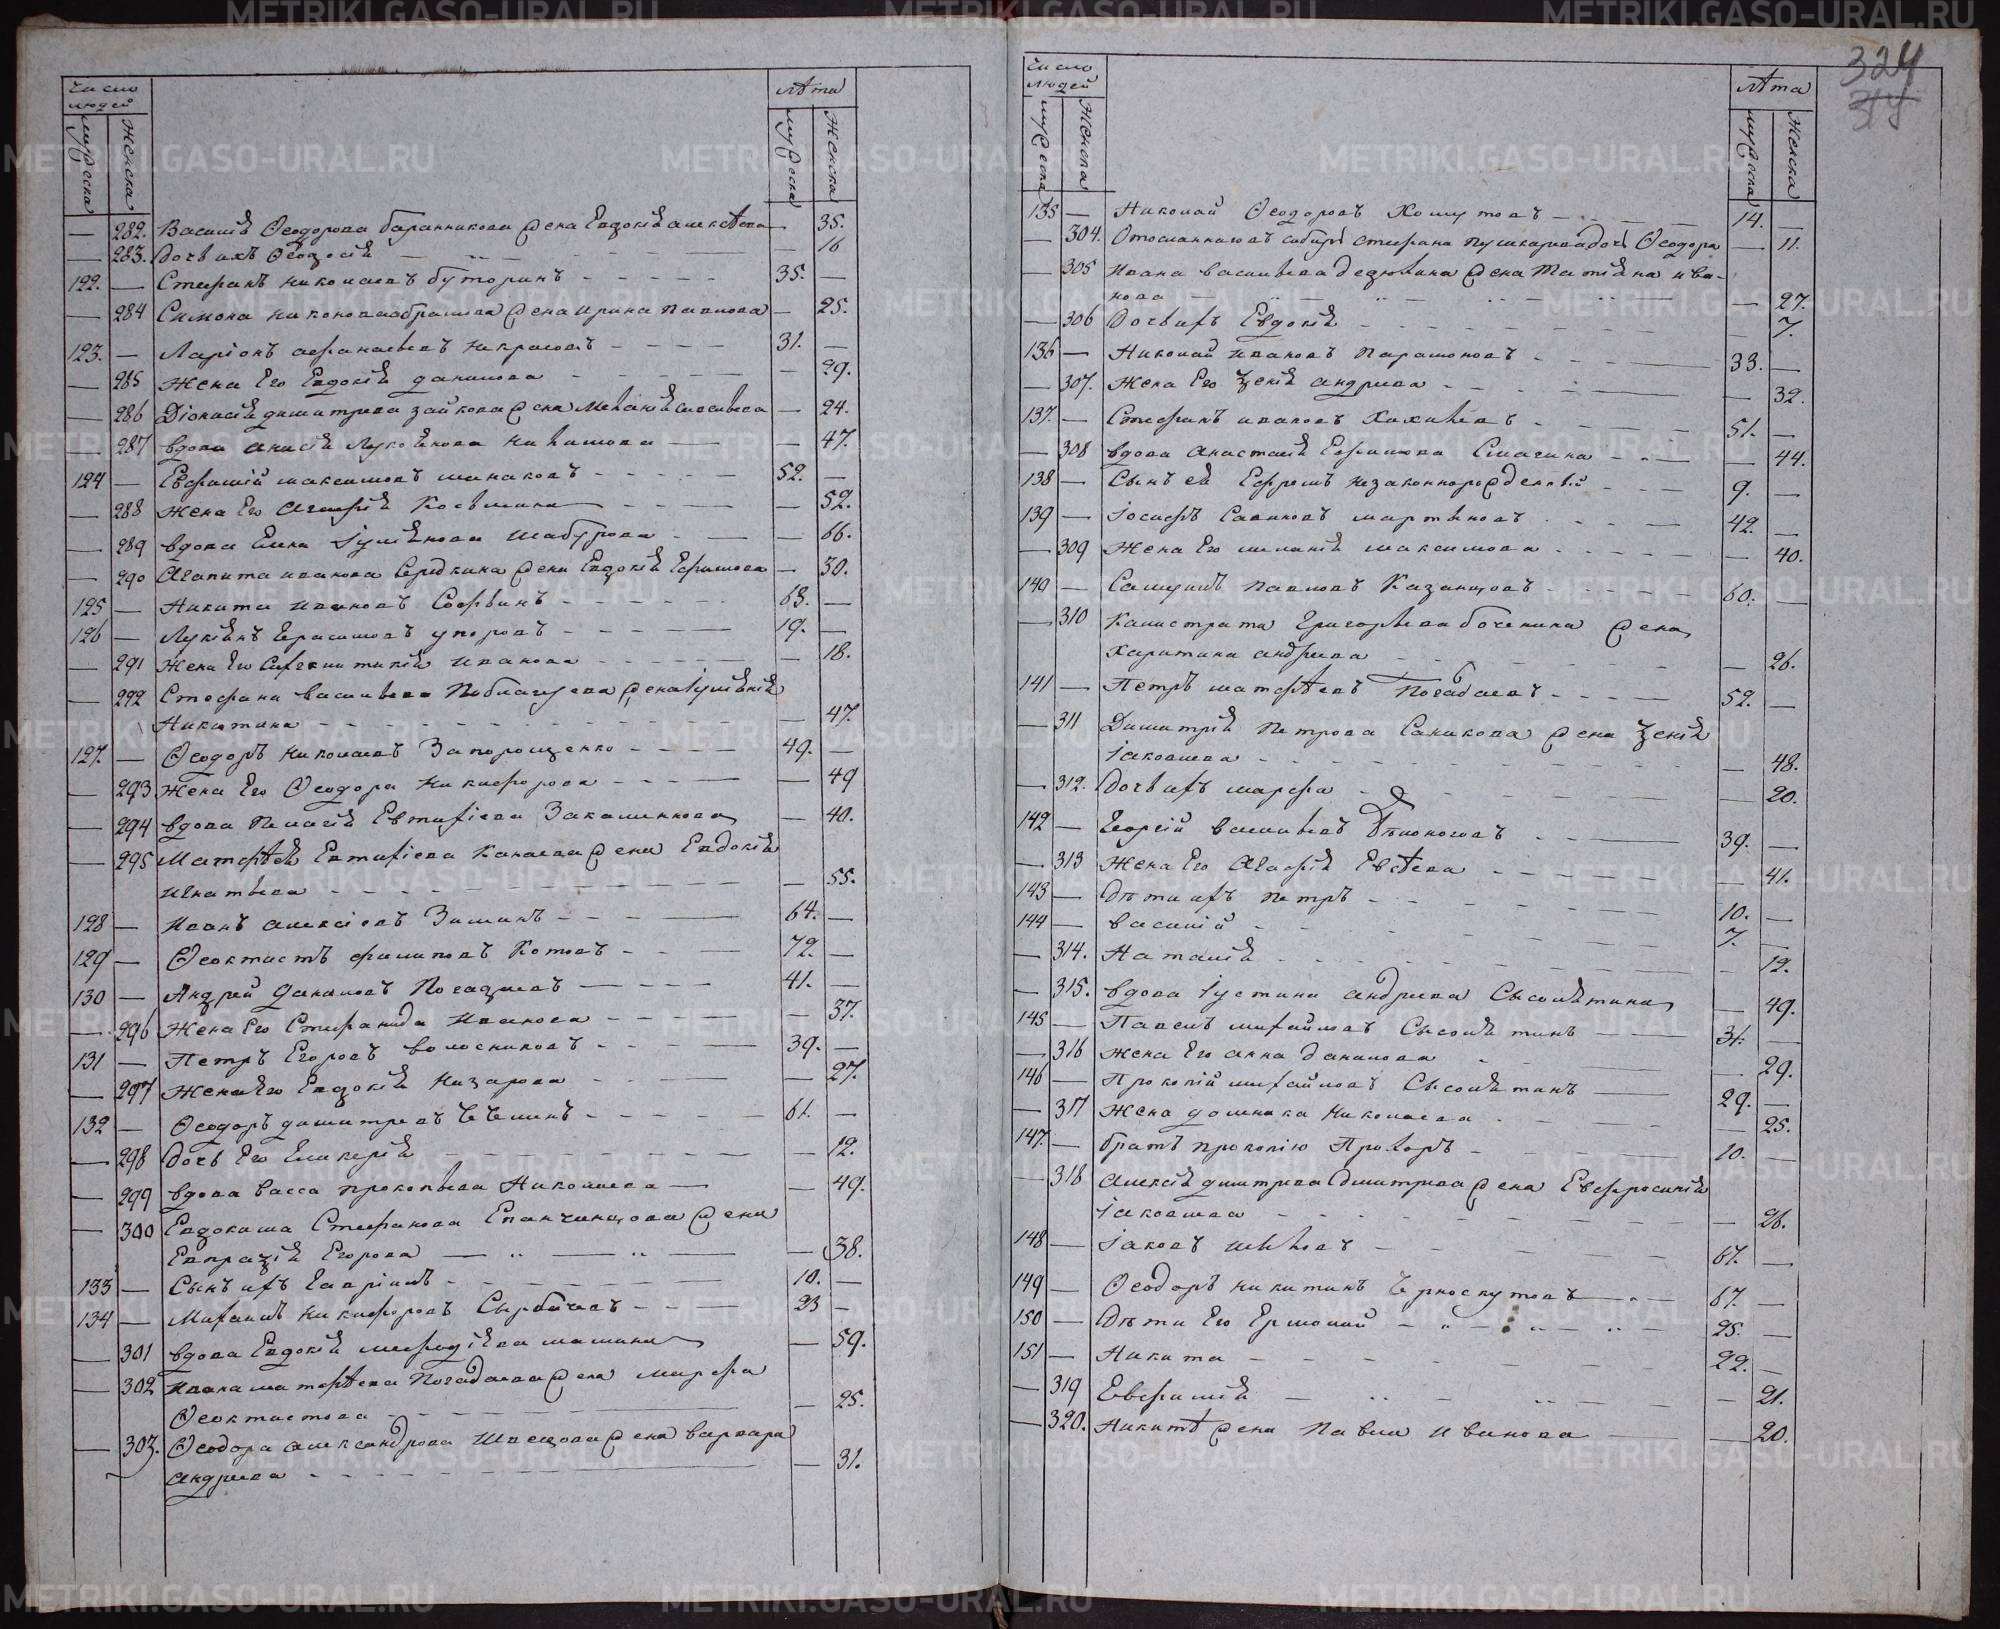 METRIKI.GASO-URAL.RU
Число людей
мужеска
Женска
лѣта
мужеска
Женска
— 282. Василія Ѳеодорова баранникова жена Евдокія алексѣева — 35.
— 283. Дочь ихъ Ѳеодосія — 16
122. — Стефанъ николаевъ буторинъ 35. —
— 284 Симона никонова абрамова жена ирина павлова — 25.
123. — Ларіонъ афанасьевъ некрасовъ 31. —
— 285 Жена Его Евдокія данилова — 29.
— 286 Діонисія димитріева зайкова жена Меланія — 24.
— 287 вдова анисія — 47.
124 — Евфимій максимовъ минаковъ 52. —
— 288 Жена Его Агафія Косьмина — 52.
— 289 вдова Елена Іуліанова Шабурова — 66.
— 290 Агапита иванова жена Евдокія Ефимова — 30.
125 — Никита ивановъ 63. —
126 — Лукіянъ Герасимовъ упоровъ 19. —
— 291 Жена Его иванова — 18.
— 292 Стефана васильева жена Іуліанія
Никитина — 47.
127. — Ѳеодоръ николаевъ Запорощенко 49. —
— 293 Жена Его Ѳеодора никифорова — 49
— 294 вдова Пелагія Евтихіева — 40.
— 295 Матфея Евтихіева Канаева жена Евдокія
игнатьева — 55.
128 — иванъ алексіевъ Зиминъ 64. —
129 — Ѳеоктистъ филиповъ Котовъ 72. —
130 — Андрей даниловъ 41. —
— 296 Жена Его Стефанида иванова — 37.
131 — Петръ Егоровъ волосниковъ 39. —
— 297 Жена Его Евдокія назарова — 27.
132 — Ѳеодоръ димитріевъ 61. —
— 298 дочь Его Гликерія — 12.
— 299 вдова васса прокопьева Николаева — 49.
— 300 Евдокима Стефанова Епанчинцова жена
Евпраксія Егорова — 38.
133 — Сынъ ихъ Гавріилъ 10. —
134 — Михаилъ никифоровъ 23 —
— 301 вдова Евдокія мефодіева машина — 59.
— 302 ивана матфѣева Погадаева жена марфа
Ѳеоктистова — 25.
— 303. Ѳеодора александрова Швецова жена варвара
андреева — 31.
324
314
Число людей
мужеска
Женска
лѣта
мужеска
Женска
135 — Николай Ѳеодоровъ Хомутовъ 14. —
— 304. Отосланнаго въ сибирь стефана пушкарева дочь Ѳеодора — 11.
— 305 ивана васильева жена Татіяна ива-
нова — 27.
— 306 Дочь ихъ Евдокія — 7.
136 — Николай ивановъ Парамоновъ 33. —
— 307. Жена Его Ксенія андреева — 32.
137. — Стефанъ ивановъ 51. —
— 308 вдова анастасія Ефимова Смагина — 44.
138 — Сынъ ея Ефремъ незаконнорожденный 9. —
139 — Іосифъ Савиновъ мартыновъ 42. —
— 309 Жена Его меланія максимова — 40.
140 — Самуилъ павловъ Казанцовъ 60. —
— 310 Калистрата Григорьева боченина жена
харитина андреева — 26.
141 — Петръ матфѣевъ 52. —
— 311 Димитрія Петрова Санникова жена Ксенія
Іаковлева — 48.
— 312. Дочь ихъ марфа — 20.
142 — Георгій васильевъ 39. —
— 313 Жена Его Агафія Евсѣева — 41.
143 — Дѣти ихъ петръ 10. —
144 — василій 7. —
— 314. Наталія — 12.
— 315. вдова Іустина андреева Сысолятина — 49.
145 — Павелъ михайловъ Сысолятинъ 31. —
— 316 Жена Его анна данилова — 29.
146 — Прокопій михайловъ Сысолятинъ 29. —
— 317 Жена домника николаева — 25.
147. — братъ прокопію Прохоръ 10. —
— 318 алексія димитріева жена Евфросинія
Іаковлева — 26.
148 — Іаковъ 67. —
149 — Ѳеодоръ никитинъ Черноскутовъ 67. —
150 — Дѣти Его Ермолай 25. —
151 — Никита 22. —
— 319 Евфимія — 21.
— 320. Никитѣ жена Павла иванова — 20.